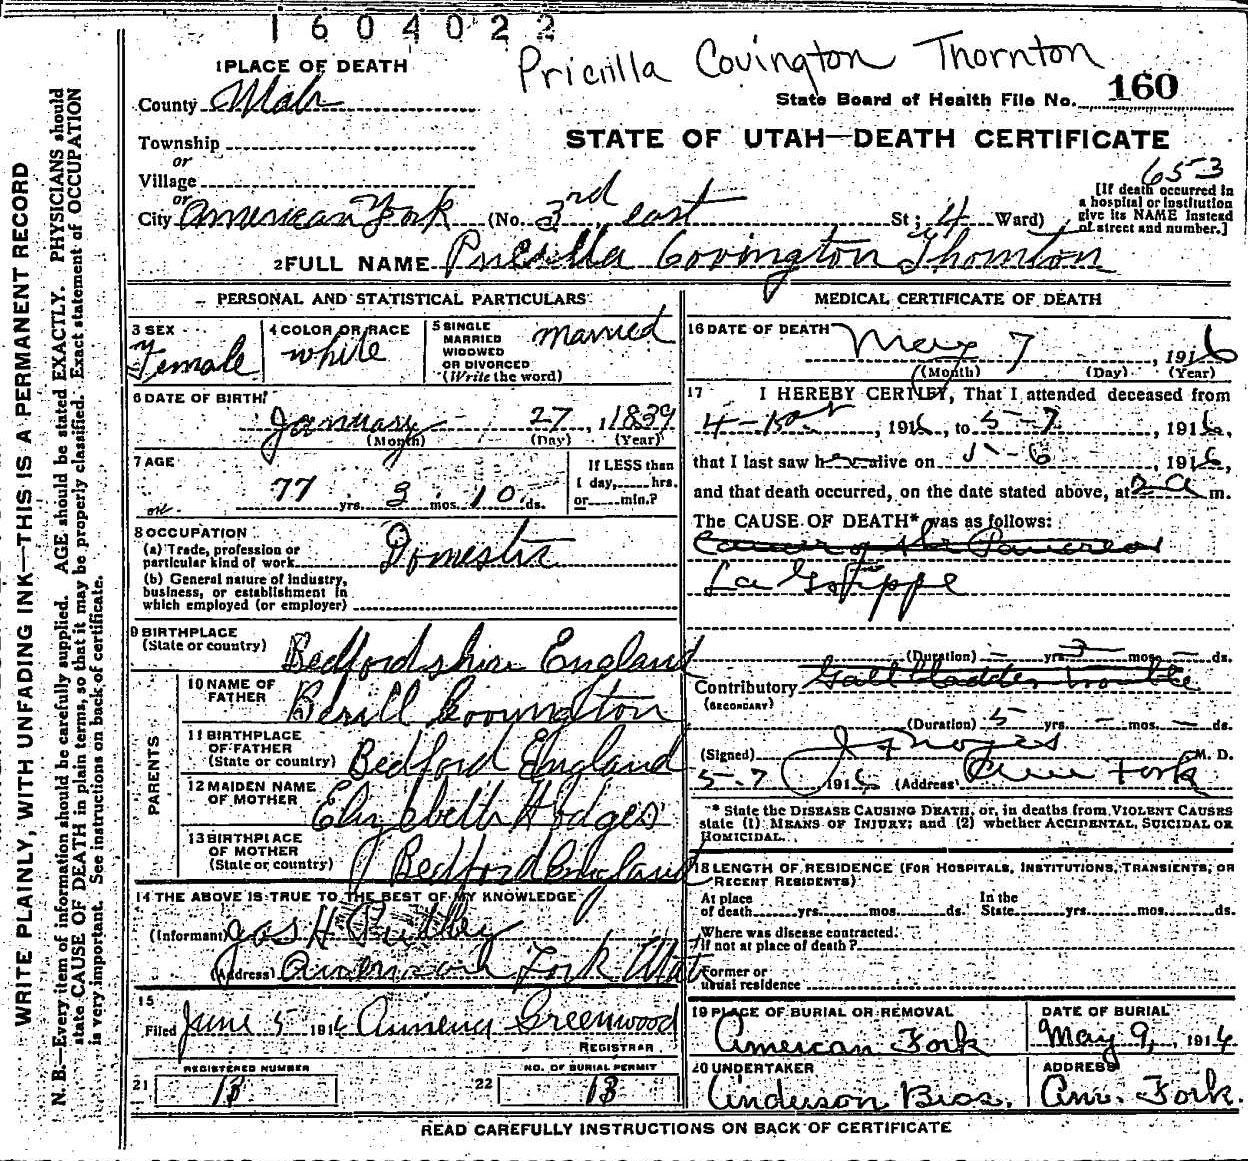 1604022
Pricilla Covington Thornton
1 PLACE OF DEATH
State Board of Health File No. 160
County Utah
STATE OF UTAH—DEATH CERTIFICATE
Township
or
Village
653
or
City American Fork (No. 3rd east St; 4 Ward)
[If death occurred in
a hospital or institution
give its NAME instead
of street and number.]
2 FULL NAME Pricilla Covington Thornton
PERSONAL AND STATISTICAL PARTICULARS
3 SEX
Female
4 COLOR OR RACE
white
5 SINGLE
MARRIED
WIDOWED
OR DIVORCED
(Write the word)
married
6 DATE OF BIRTH
January 27, 1839
(Month) (Day) (Year)
7 AGE
77 yrs. 3 mos. 10 ds.
If LESS than
1 day, hrs.
or min.?
8 OCCUPATION
(a) Trade, profession or
particular kind of work Domestic
(b) General nature of industry,
business, or establishment in
which employed (or employer)
9 BIRTHPLACE
(State or country) Bedfordshire England
PARENTS
10 NAME OF
FATHER Berill Covington
11 BIRTHPLACE
OF FATHER
(State or country) Bedford England
12 MAIDEN NAME
OF MOTHER Elizebeth Hodges
13 BIRTHPLACE
OF MOTHER
(State or country) Bedford England
14 THE ABOVE IS TRUE TO THE BEST OF MY KNOWLEDGE
(Informant) Jas H
(Address) American Fork Utah
15
Filed June 5 1916 Armena Greenwood
REGISTRAR
21 REGISTERED NUMBER
13
22 NO. OF BURIAL PERMIT
13
MEDICAL CERTIFICATE OF DEATH
16 DATE OF DEATH
May 7, 1916
(Month) (Day) (Year)
17 I HEREBY CERTIFY, That I attended deceased from
, 1916, to 5-7, 1916,
that I last saw her alive on 5-6, 1916,
and that death occurred, on the date stated above, at 2 a m.
The CAUSE OF DEATH* was as follows:
Cancer of the Pancreas
La Grippe
(Duration) — yrs. 3 mos. — ds.
Contributory Gall bladder trouble
(SECONDARY)
(Duration) 5 yrs. — mos. — ds.
(Signed) J F Noyes M. D.
5-7 1916 (Address) Am Fork
* State the DISEASE CAUSING DEATH, or, in deaths from VIOLENT CAUSES
state (1) MEANS OF INJURY; and (2) whether ACCIDENTAL, SUICIDAL OR
HOMICIDAL.
18 LENGTH OF RESIDENCE (FOR HOSPITALS, INSTITUTIONS, TRANSIENTS, OR
RECENT RESIDENTS)
At place
of death yrs. mos. ds.
In the
State yrs. mos. ds.
Where was disease contracted,
if not at place of death?
Former or
usual residence
19 PLACE OF BURIAL OR REMOVAL
American Fork
DATE OF BURIAL
May 9, 1916
20 UNDERTAKER
Anderson Bros.
ADDRESS
Am. Fork.
READ CAREFULLY INSTRUCTIONS ON BACK OF CERTIFICATE
WRITE PLAINLY, WITH UNFADING INK—THIS IS A PERMANENT RECORD
N. B.—Every item of information should be carefully supplied. AGE should be stated EXACTLY. PHYSICIANS should
state CAUSE OF DEATH in plain terms, so that it may be properly classified. Exact statement of OCCUPATION
is very important. See instructions on back of certificate.